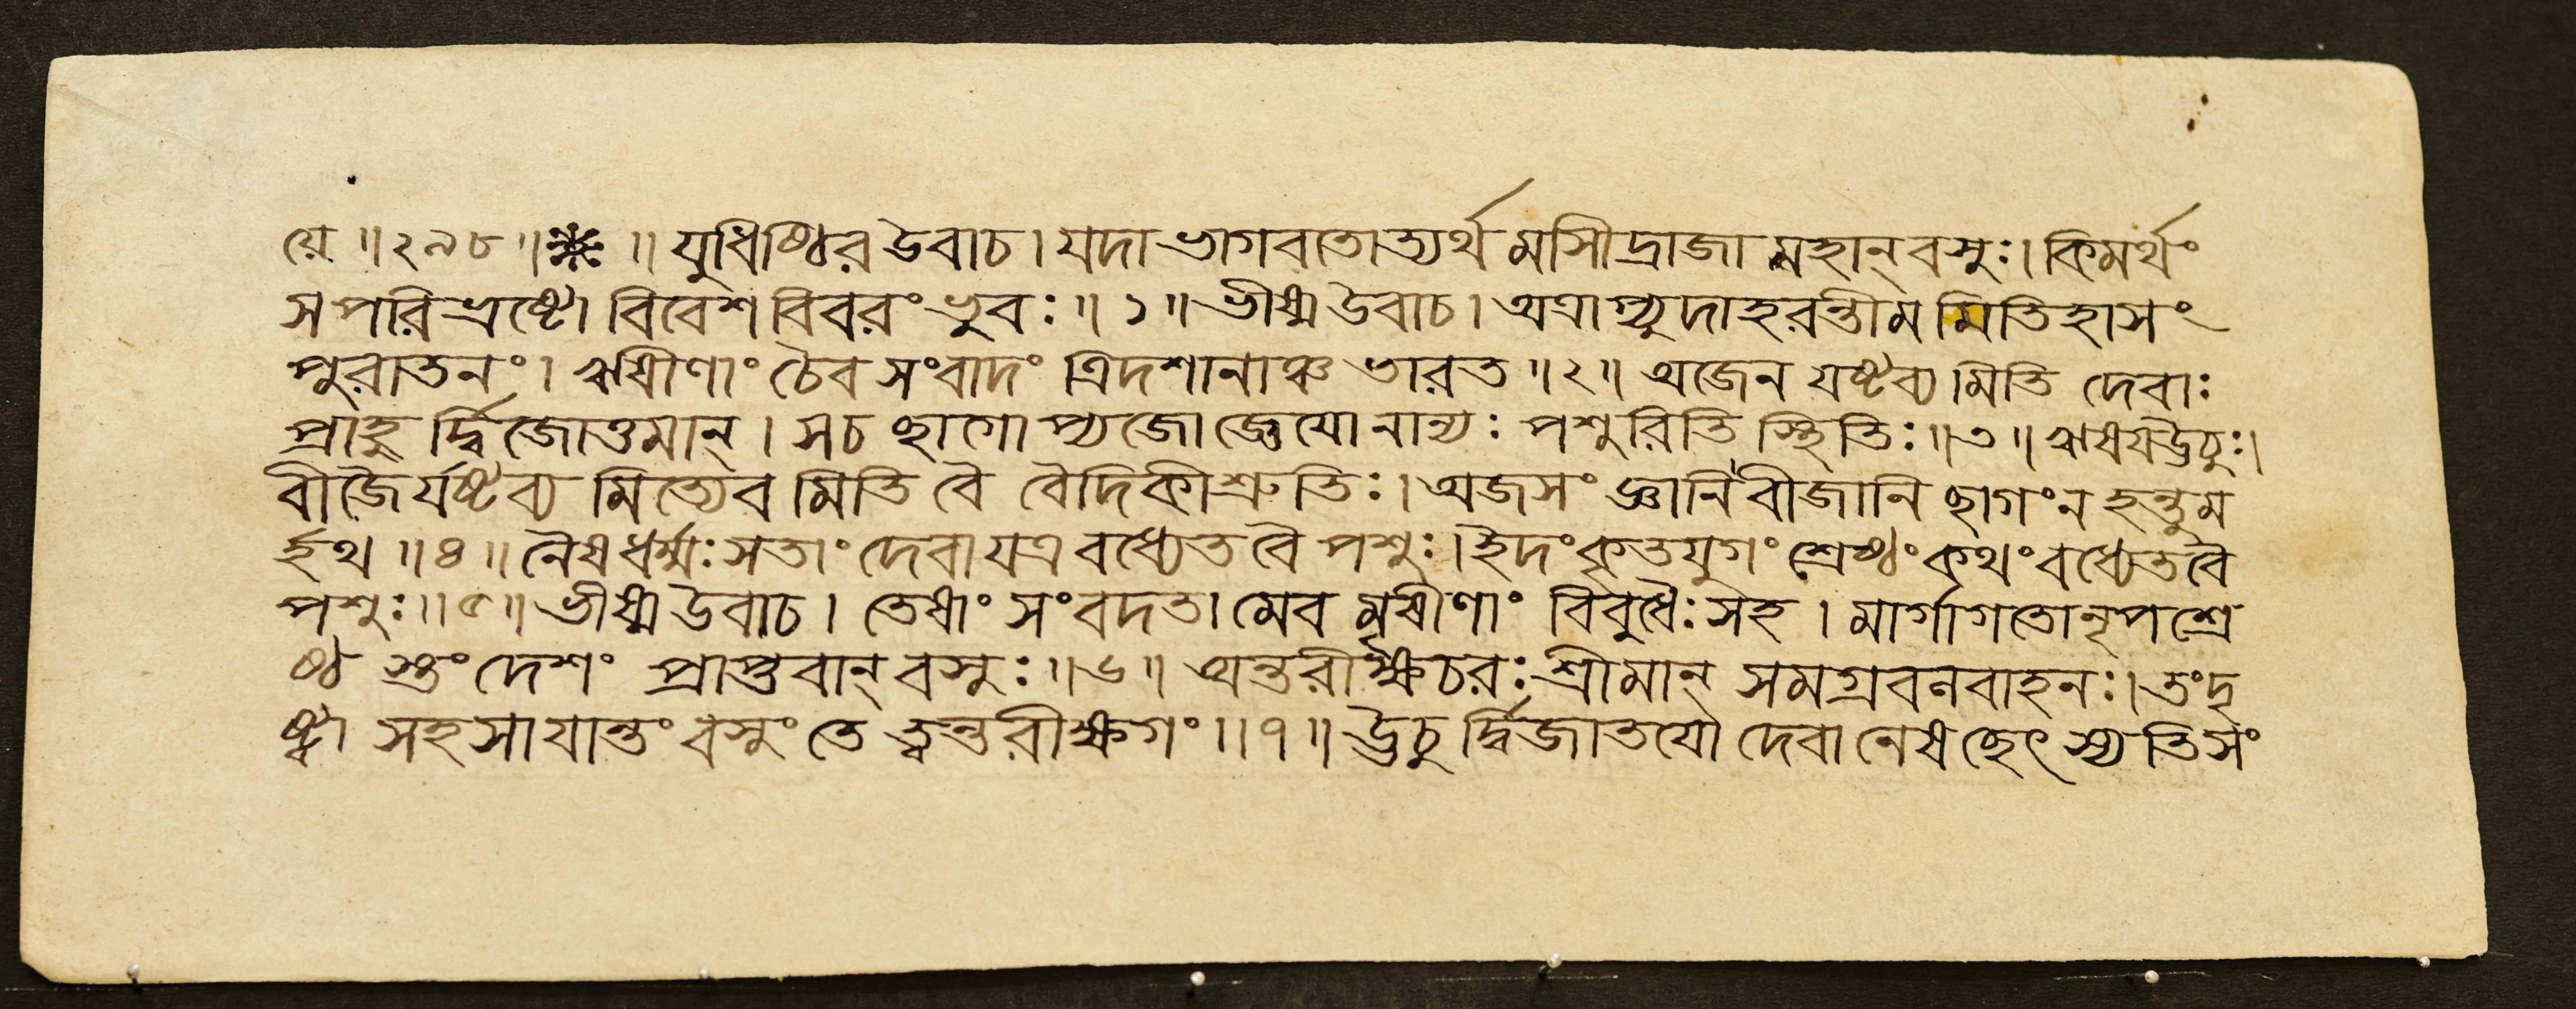 য়ে ॥ ২৯৮ ॥ ॥ যুধিষ্ঠির উবাচ । যদা ভাগবতোত্যর্থ মসীদ্রাজা মহান্ বসুঃ । কিমর্থং
স পরিভ্রষ্টো বিবেশ বিবরং ভুবঃ ॥ ১ ॥ ভীষ্ম উবাচ । অত্রাপ্যুদাহরন্তীম মিতিহাসং
পুরাতনং । ঋষীণাং চৈব সংবাদং ত্রিদশানাঞ্চ ভারত ॥ ২ ॥ অজেন যষ্টব্য মিতি দেবাঃ
প্রাহু র্দ্বিজোত্তমান্ । স চ ছাগোপ্যজো জ্ঞেয়ো নান্যঃ পশুরিতি স্থিতিঃ ॥ ৩ ॥ ঋষয় ঊচুঃ ।
বীজৈর্যষ্টব্য মিত্যেব মিতি বৈ বৈদিকী শ্রুতিঃ । অজসং জ্ঞানি বীজানি ছাগং ন হন্তুম
র্হথ ॥ ৪ ॥ নৈষ ধর্ম্মঃ সতাং দেবা যত্র বধ্যেত বৈ পশুঃ । ইদং কৃতযুগং শ্রেষ্ঠং কথং বধ্যেত বৈ
পশুঃ ॥ ৫ ॥ ভীষ্ম উবাচ । তেষাং সংবদতা মেব মৃষীণাং বিবুধৈঃ সহ । মার্গাগতো নৃপশ্রে
ষ্ঠ স্তং দেশং প্রাপ্তবান্ বসুঃ ॥ ৬ ॥ অন্তরীক্ষচরঃ শ্রীমান্ সমগ্রবলবাহনঃ । তং দৃ
ষ্ট্বা সহসা যান্তং বসুং তে ত্বন্তরীক্ষগং ॥ ৭ ॥ ঊচু র্দ্বিজাতয়ো দেবা নেষ চ্ছেৎস্যতি সং